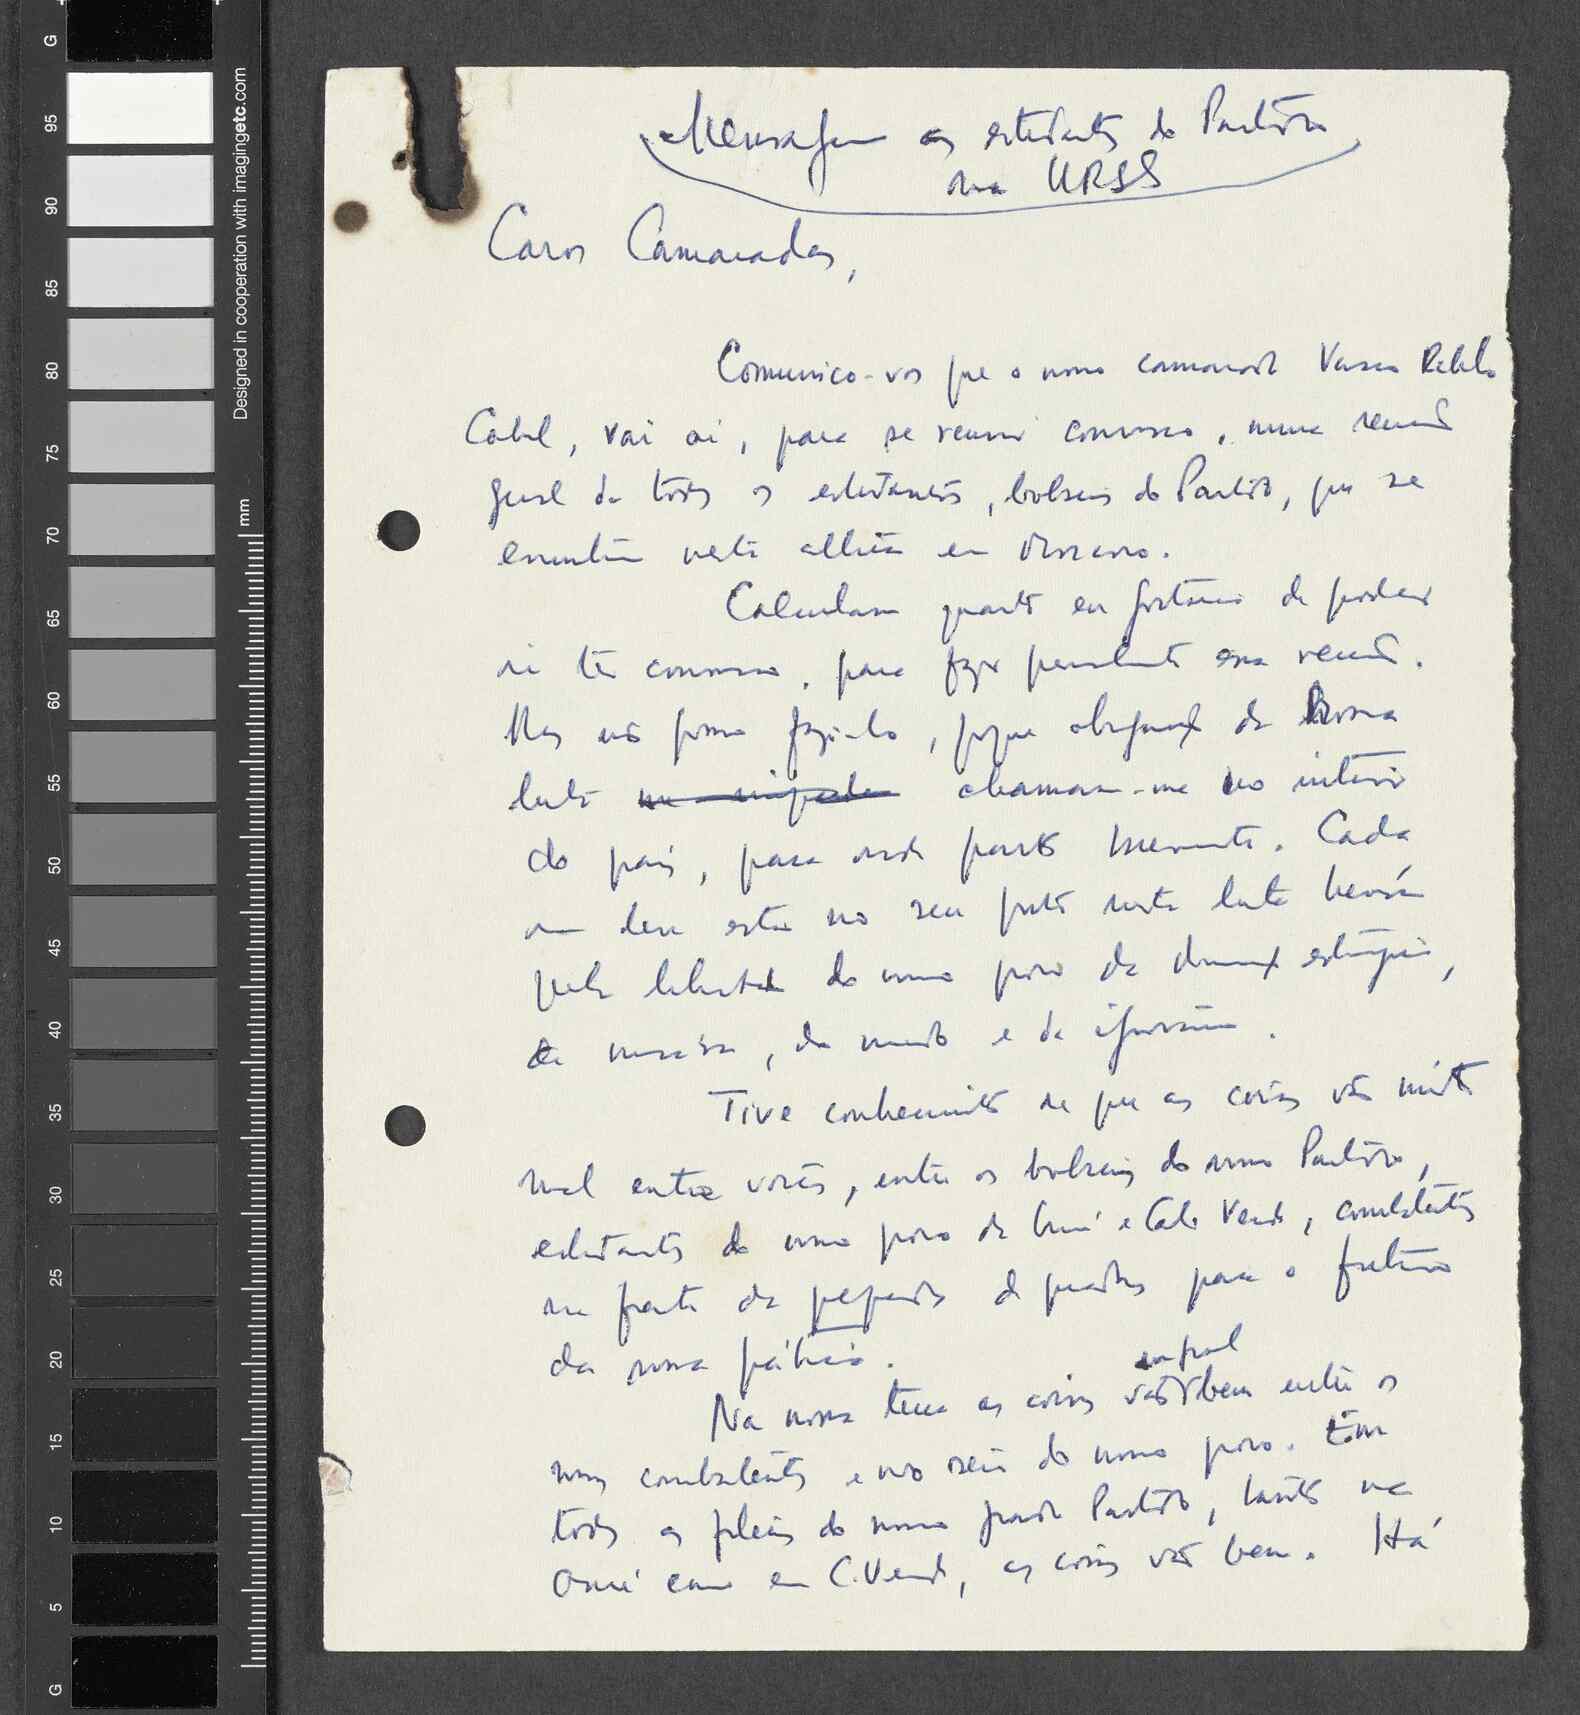 Mensagem aos estudantes do Partido
na URSS
Caros Camaradas,
Comunico-vos que o nosso camarada Vasco Cabral
Cabral, vai aí, para se reunir convosco, numa reunião
geral de todos os estudantes, bolseiros do Partido, que se
encontram nesta altura em Moscovo.
Calculam quanto eu gostaria de poder
ir ter convosco, para fazer pessoalmente essa reunião.
Mas não posso fazê-lo, porque obrigações da nossa
luta chamam-me no interior
do país, para onde parto brevemente. Cada
um deve estar no seu posto nesta luta heróica
pela libertação do nosso povo da dominação estrangeira,
da miséria, do medo e da ignorância.
Tive conhecimento de que as coisas vão muito
mal entre vocês, entre os bolseiros do nosso Partido,
estudantes do nosso povo da Guiné e Cabo Verde, combatentes
na frente da preparação de quadros para o futuro
da nossa pátria.
em geral
Na nossa terra as coisas vão bem entre os
nossos combatentes e no seio do nosso povo. Em
todas as fileiras do nosso grande Partido, tanto na
Guiné como em C. Verde, as coisas vão bem. Há
G
95
90
85
80
75
70
65
60
55
50
45
40
35
30
25
20
15
10
5
G
Designed in cooperation with imagingetc.com
mm